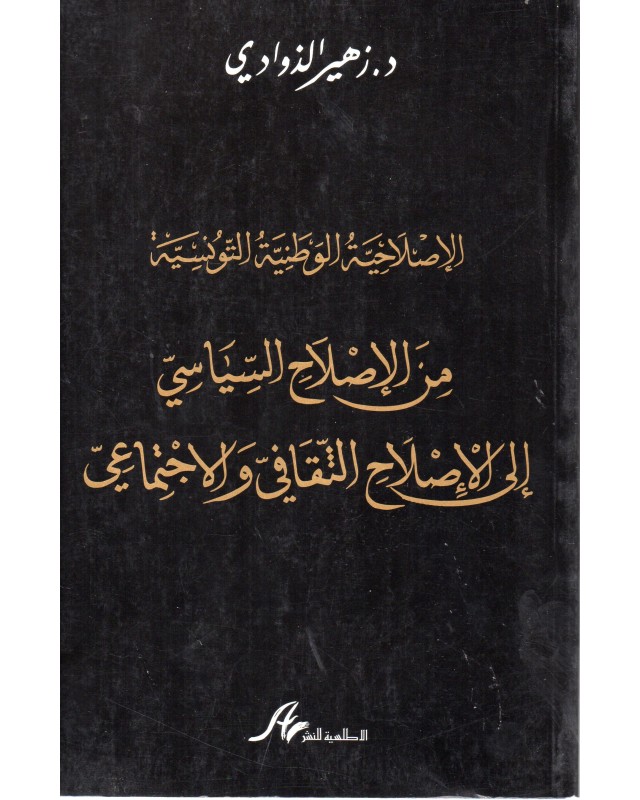 د. زهير الذوادي
الإصْلَاحِيَّةُ الوَطَنِيَّةُ التّونُسِيَّة
مِنَ الإِصْلَاحِ السِّيَاسِيّ
إلى الإِصْلَاحِ الثَّقَافيّ وَالاجْتِمَاعِيّ
الاطلسية للنشر